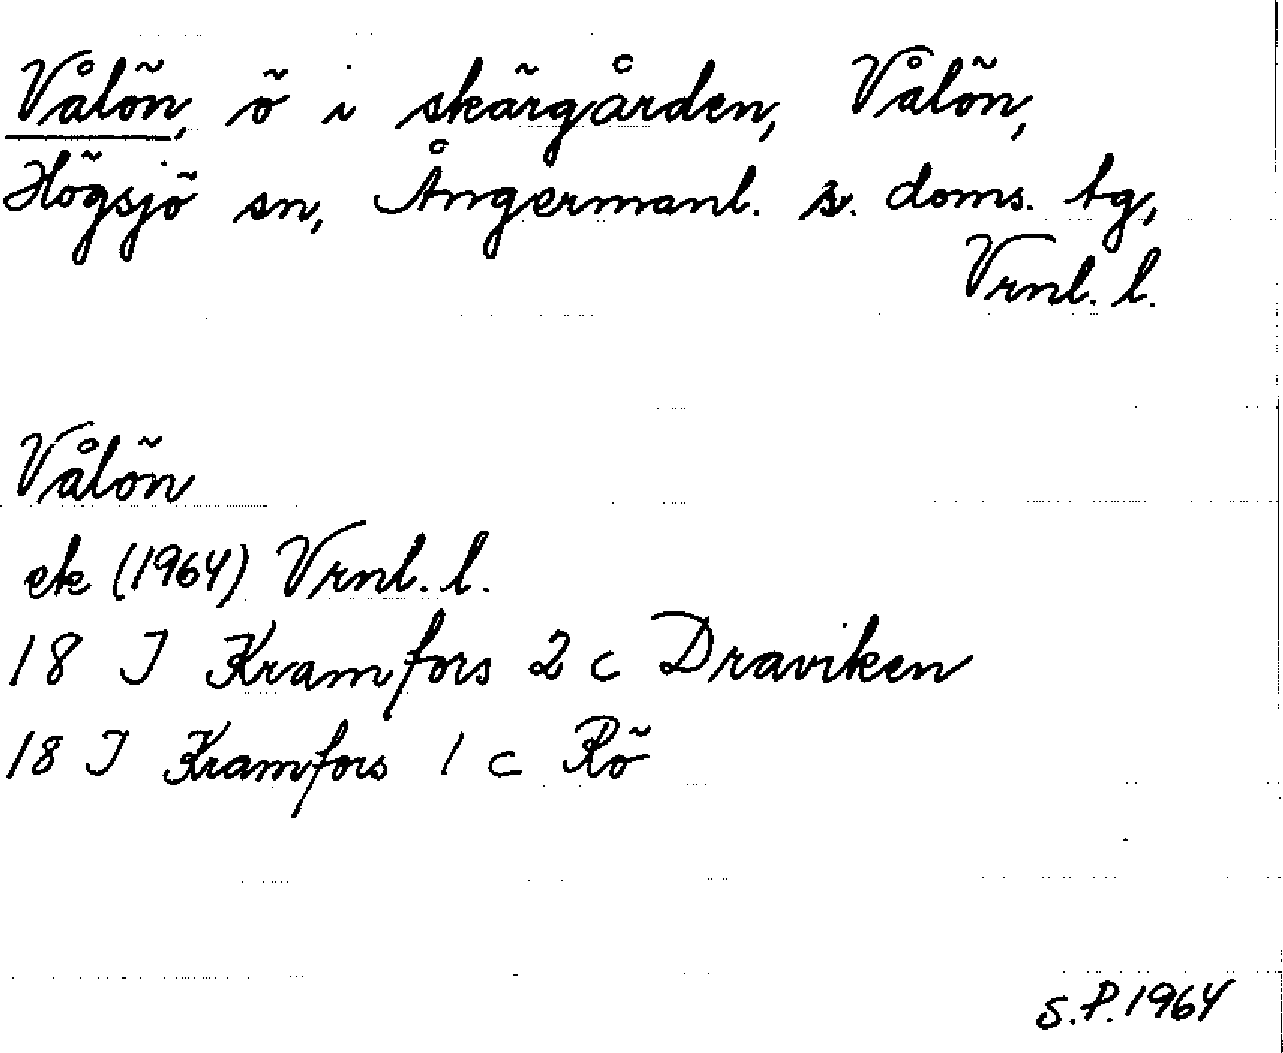 Vålön, ö i skärgården, Vålön,
Högsjö sn, Ångermanl. s. doms. tg,
Vrnl. l.
Vålön
ek (1964) Vrnl. l.
18 I Kramfors 2 c Draviken
18 I Kramfors 1 c Rö
S.P. 1964